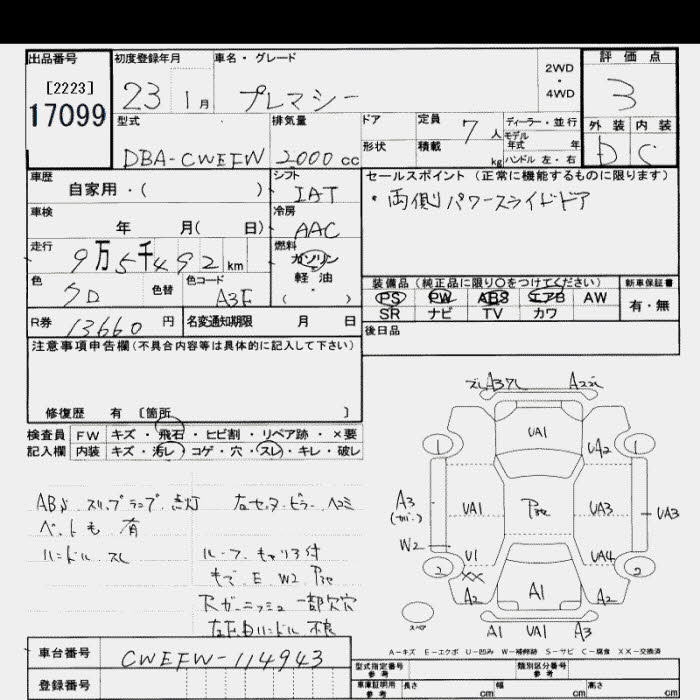 出品番号 初度登録年月 車名・グレード 評価点
[2223] 23 1月 プレマシー 2WD・4WD 3
17099
型式 排気量 ドア 定員 7人 ディーラー・並行 外装 内装
DBA-CWEFW 2000cc 形状 積載 kg モデル年式 年 ハンドル 左・右 D C
車歴 シフト セールスポイント(正常に機能するものに限ります)
自家用・( ) IAT ・両側パワースライドドア
車検 冷房
年 月( 日) AAC
走行 燃料
9万5千492km ガソリン
軽油
( ・ )
色 色替 色コード 装備品(純正品に限り○をつけてください) 新車保証書
クロ A3F PS PW ABS エアB AW 有・無
SR ナビ TV カワ
R券 13660円 名変通知期限 月 日 後日品
注意事項申告欄(不具合内容等は具体的に記入して下さい)
修復歴 有 〔箇所 〕
検査員 FW キズ・飛石・ヒビ割・リペア跡・×要
記入欄 内装 キズ・汚レ・コゲ・穴・スレ・キレ・破レ
ABS スリップランプ 点灯 左センターピラー ヘコミ
ペットも 有
ハンドル スレ ルーフ キャリア付
E W2 P3e
Rガーニッシュ 一部欠穴
左 ハンドル 不良
A37L A22
1 UA1 UA2 1
A3 UA1 P3e UA3 UA3
(カバー)
W2 U1 UA4
2 XX A1 2
A2 A2
スペア A1 UA1 A3
A-キズ E-エクボ U-凹み W-補修跡 S-サビ C-腐食 XX-交換済
車台番号 CWEFW-114943
型式指定番号 参考 類別区分番号 参考
登録番号 車庫証明用 参考 長さ cm 幅 cm 高さ cm